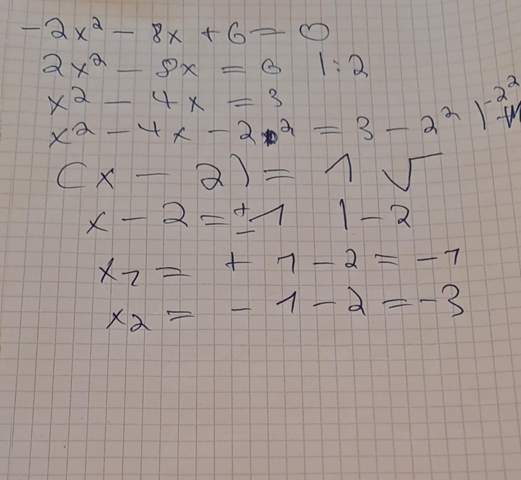 -2x² - 8x + 6 = 0
2x² - 8x = 6 | : 2
x² - 4x = 3
x² - 4x - 2² = 3 - 2² | -2²
(x - 2) = 1 √
x - 2 = ± 1 | - 2
x₁ = + 1 - 2 = -1
x₂ = - 1 - 2 = -3